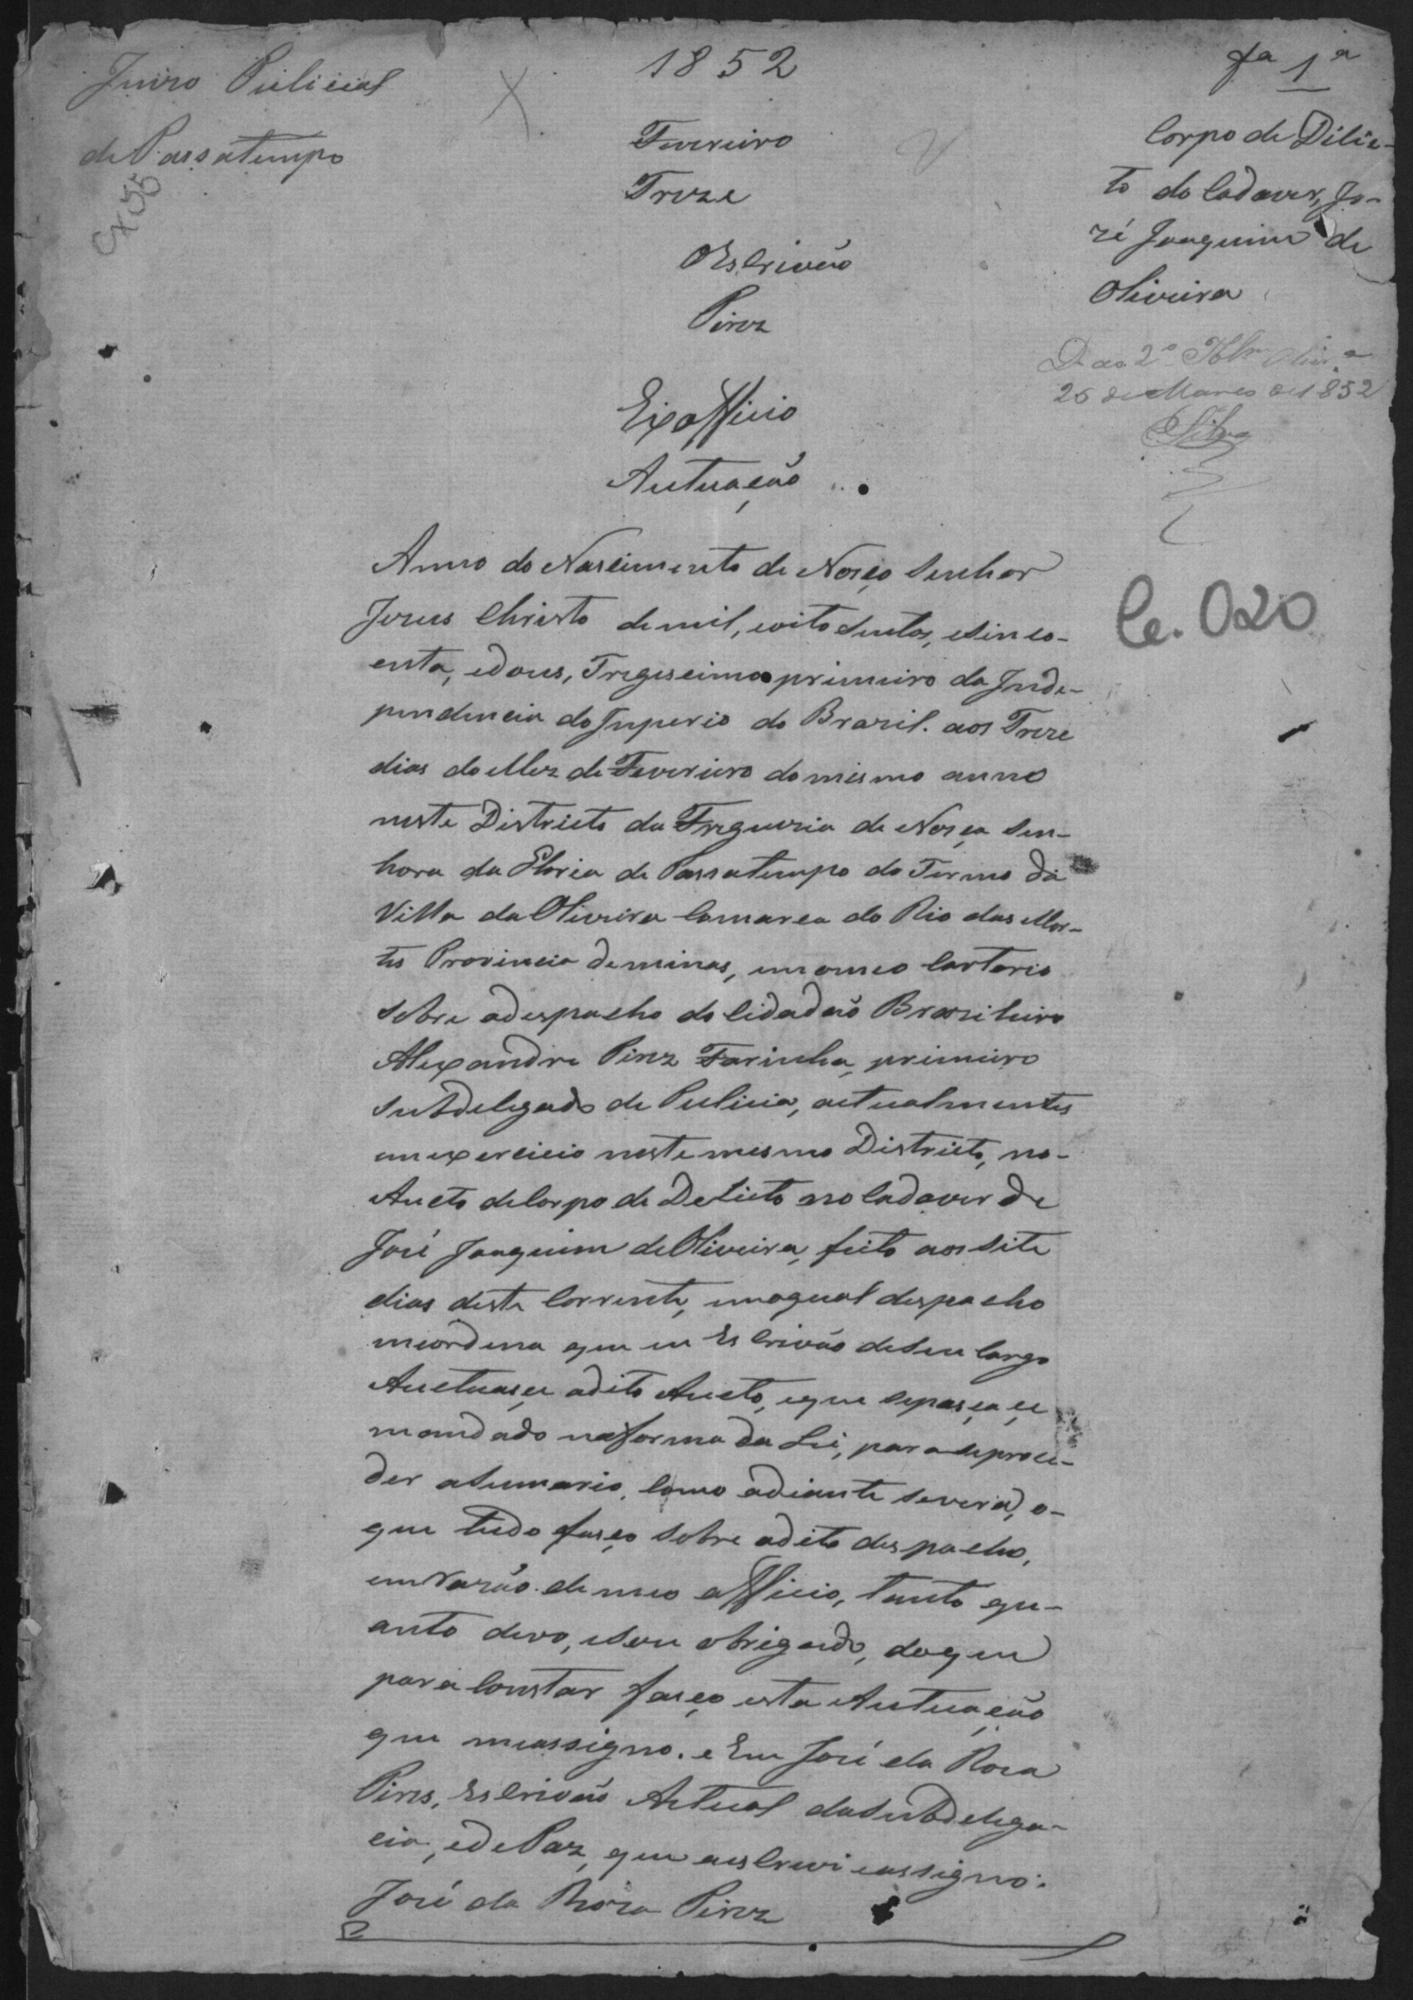 1852
fª 1ª
Juizo Pulicial
de Passatempo
Cx 35
Fevereiro
Treze
OEsCrivão
Pirez
Exofficio
Autuação
Corpo de Dilic-
to do Cadaver, Jo-
zé Joaquim de
Oliveira
D. ao 2º
26 de Março de 1852
Silva
Anno do Nascimento de Nosço Senhor
Jezus Christo de mil, coito Sentos, esinco-
enta, edous, Tregeseimo primeiro da Inde-
pendencia do Imperio do Brazil. aos Treze
dias do Mez de Fevereiro do mesmo anno
neste Districto da Freguezia de Nosça Sen-
hora da Gloria de Passatempo do Termo da
Villa da Oliveira Comarca do Rio das Mor-
tes Provincia de minas, em omeo Cartorio
sobre adespacho do Cidadaõ Brazileiro
Alexandre Pirez Farinha, primeiro
Subdelegado de Pulicia, actualmentes
em exercicio neste mesmo Districto, no-
Aucto de Corpo de Delicto no Cadaver de
José Joaquim de Oliveira, feito aos Sete
dias deste Corrente, em aqual despacho
meordena que eu EsCrivão deSeu Cargo
Auctuasçe adito Aucto, eque sepasça çe
mandado na forma da Lei, para seproce-
der aSumario, Como adiante severá, o-
que tudo fasço sobre adito despacho,
em razão de meo officio, tanto qu-
anto devo, esou obrigado, do que
para Constar fasço esta Autuação
que meassigno. e Eu José da Roza
Pires, EsCrivaõ Actual da Subdelega-
cia, ede Paz, que aesCrevi eassigno.
José da Roza Pirez
Ce. 020